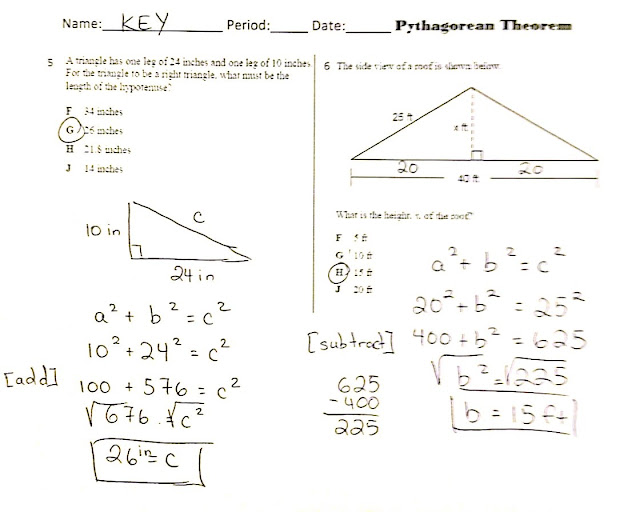 Name: KEY Period: Date: Pythagorean Theorem
5 A triangle has one leg of 24 inches and one leg of 10 inches.
For the triangle to be a right triangle, what must be the
length of the hypotenuse?
F 34 inches
G 26 inches
H 21.8 inches
J 14 inches
10 in
c
24 in
a² + b² = c²
10² + 24² = c²
[add] 100 + 576 = c²
√676 = √c²
26 in = c
6 The side view of a roof is shown below.
25 ft
x ft
20 20
40 ft
What is the height, x, of the roof?
F 5 ft
G 10 ft
H 15 ft
J 20 ft
a² + b² = c²
20² + b² = 25²
[subtract] 400 + b² = 625
√b² = √225
b = 15 ft
625
- 400
225